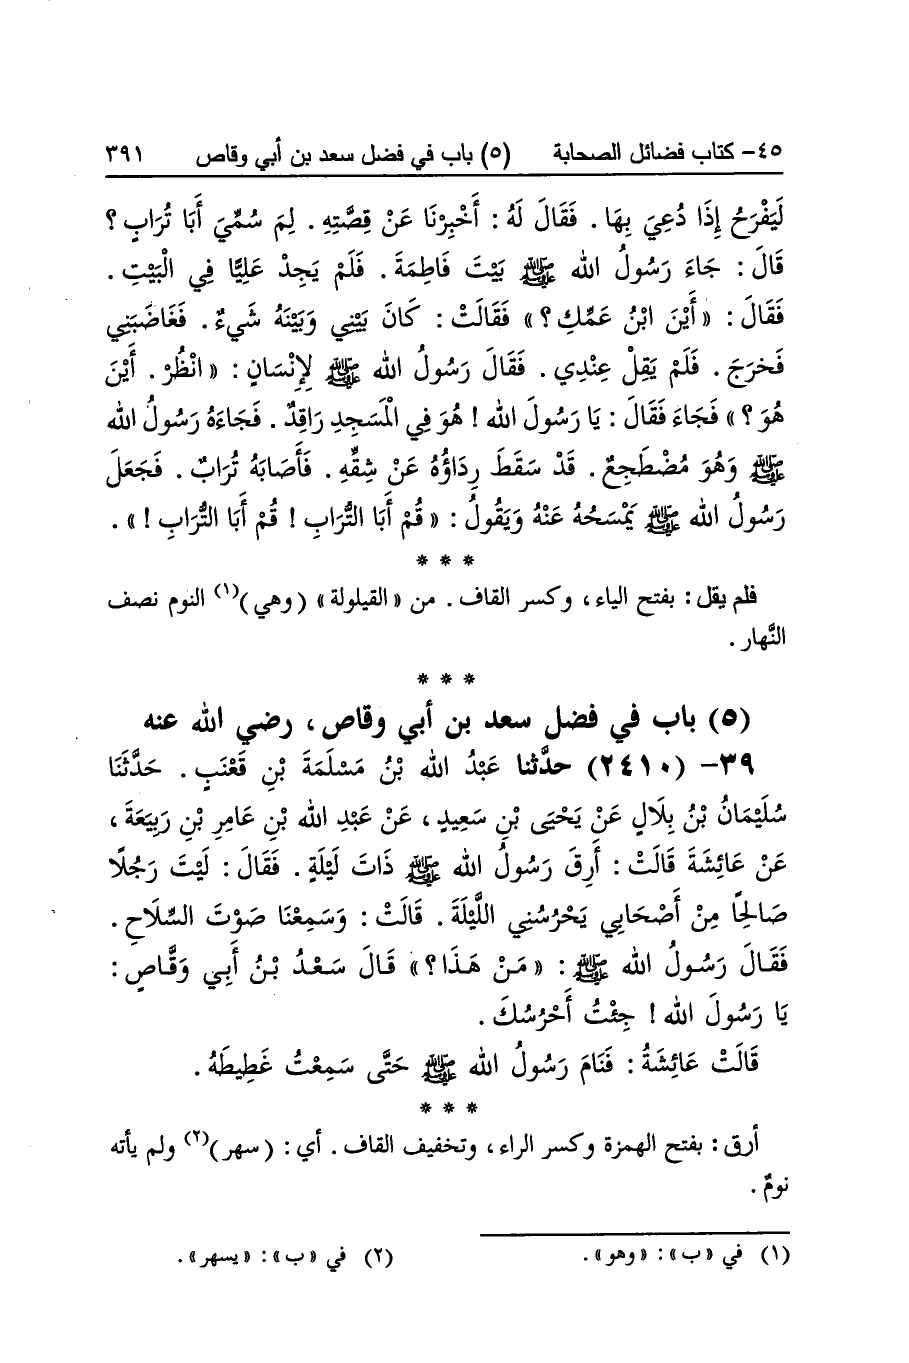 ٤٥- كتاب فضائل الصحابة (٥) باب في فضل سعد بن أبي وقاص ٣٩١
لَيَفْرَحُ إِذَا دُعِيَ بِهَا . فَقَالَ لَهُ : أَخْبِرْنَا عَنْ قِصَّتِهِ . لِمَ سُمِّيَ أَبَا تُرَابٍ ؟
قَالَ : جَاءَ رَسُولُ الله ﷺ بَيْتَ فَاطِمَةَ . فَلَمْ يَجِدْ عَلِيًّا فِي الْبَيْتِ .
فَقَالَ : « أَيْنَ ابْنُ عَمِّكِ ؟ » فَقَالَتْ : كَانَ بَيْنِي وَبَيْنَهُ شَيءٌ . فَغَاضَبَنِي
فَخرَجَ . فَلَمْ يَقِلْ عِنْدِي . فَقَالَ رَسُولُ الله ﷺ لِإِنْسَانٍ : « انْظُرْ . أَيْنَ
هُوَ ؟ » فَجَاءَ فَقَالَ : يَا رَسُولَ الله ! هُوَ فِي الْمَسَجِدِ رَاقِدٌ . فَجَاءَهُ رَسُولُ الله
ﷺ وَهُوَ مُضْطَجِعٌ . قَدْ سَقَطَ رِدَاؤُهُ عَنْ شِقِّهِ . فَأَصَابَهُ تُرَابٌ . فَجَعَلَ
رَسُولُ الله ﷺ يَمْسَحُهُ عَنْهُ وَيَقُولُ : « قُمْ أَبَا التُّرَابِ ! قُمْ أَبَا التُّرَابِ ! » .
* * *
فلم يقل : بفتح الياء ، وكسر القاف . من « القيلولة » ( وهي )(١) النوم نصف
النَّهار .
* * *
(٥) باب في فضل سعد بن أبي وقاص ، رضي الله عنه
٣٩- (٢٤١٠) حدَّثنا عَبْدُ الله بْنُ مَسْلَمَةَ بْنِ قَعْنَبٍ . حَدَّثَنَا
سُلَيْمَانُ بْنُ بِلَالٍ عَنْ يَحْيَى بْنِ سَعِيدٍ ، عَنْ عَبْدِ الله بْنِ عَامِرِ بْنِ رَبِيعَةَ ،
عَنْ عَائِشَةَ قَالَتْ : أَرِقَ رَسُولُ الله ﷺ ذَاتَ لَيْلَةٍ . فَقَالَ : لَيْتَ رَجُلًا
صَالِحًا مِنْ أَصْحَابِي يَحْرُسُنِي اللَّيْلَةَ . قَالَتْ : وَسَمِعْنَا صَوْتَ السِّلَاحِ .
فَقَالَ رَسُولُ الله ﷺ : « مَنْ هَذَا ؟ » قَالَ سَعْدُ بْنُ أَبِي وَقَّاصٍ :
يَا رَسُولَ الله ! جِئْتُ أَحْرُسُكَ .
قَالَتْ عَائِشَةُ : فَنَامَ رَسُولُ الله ﷺ حَتَّى سَمِعْتُ غَطِيطَهُ .
* * *
أرق : بفتح الهمزة وكسر الراء ، وتخفيف القاف . أي : ( سهر )(٢) ولم يأته
نومٌ .
(١) في « ب » : « وهو » . (٢) في « ب » : « يسهر » .